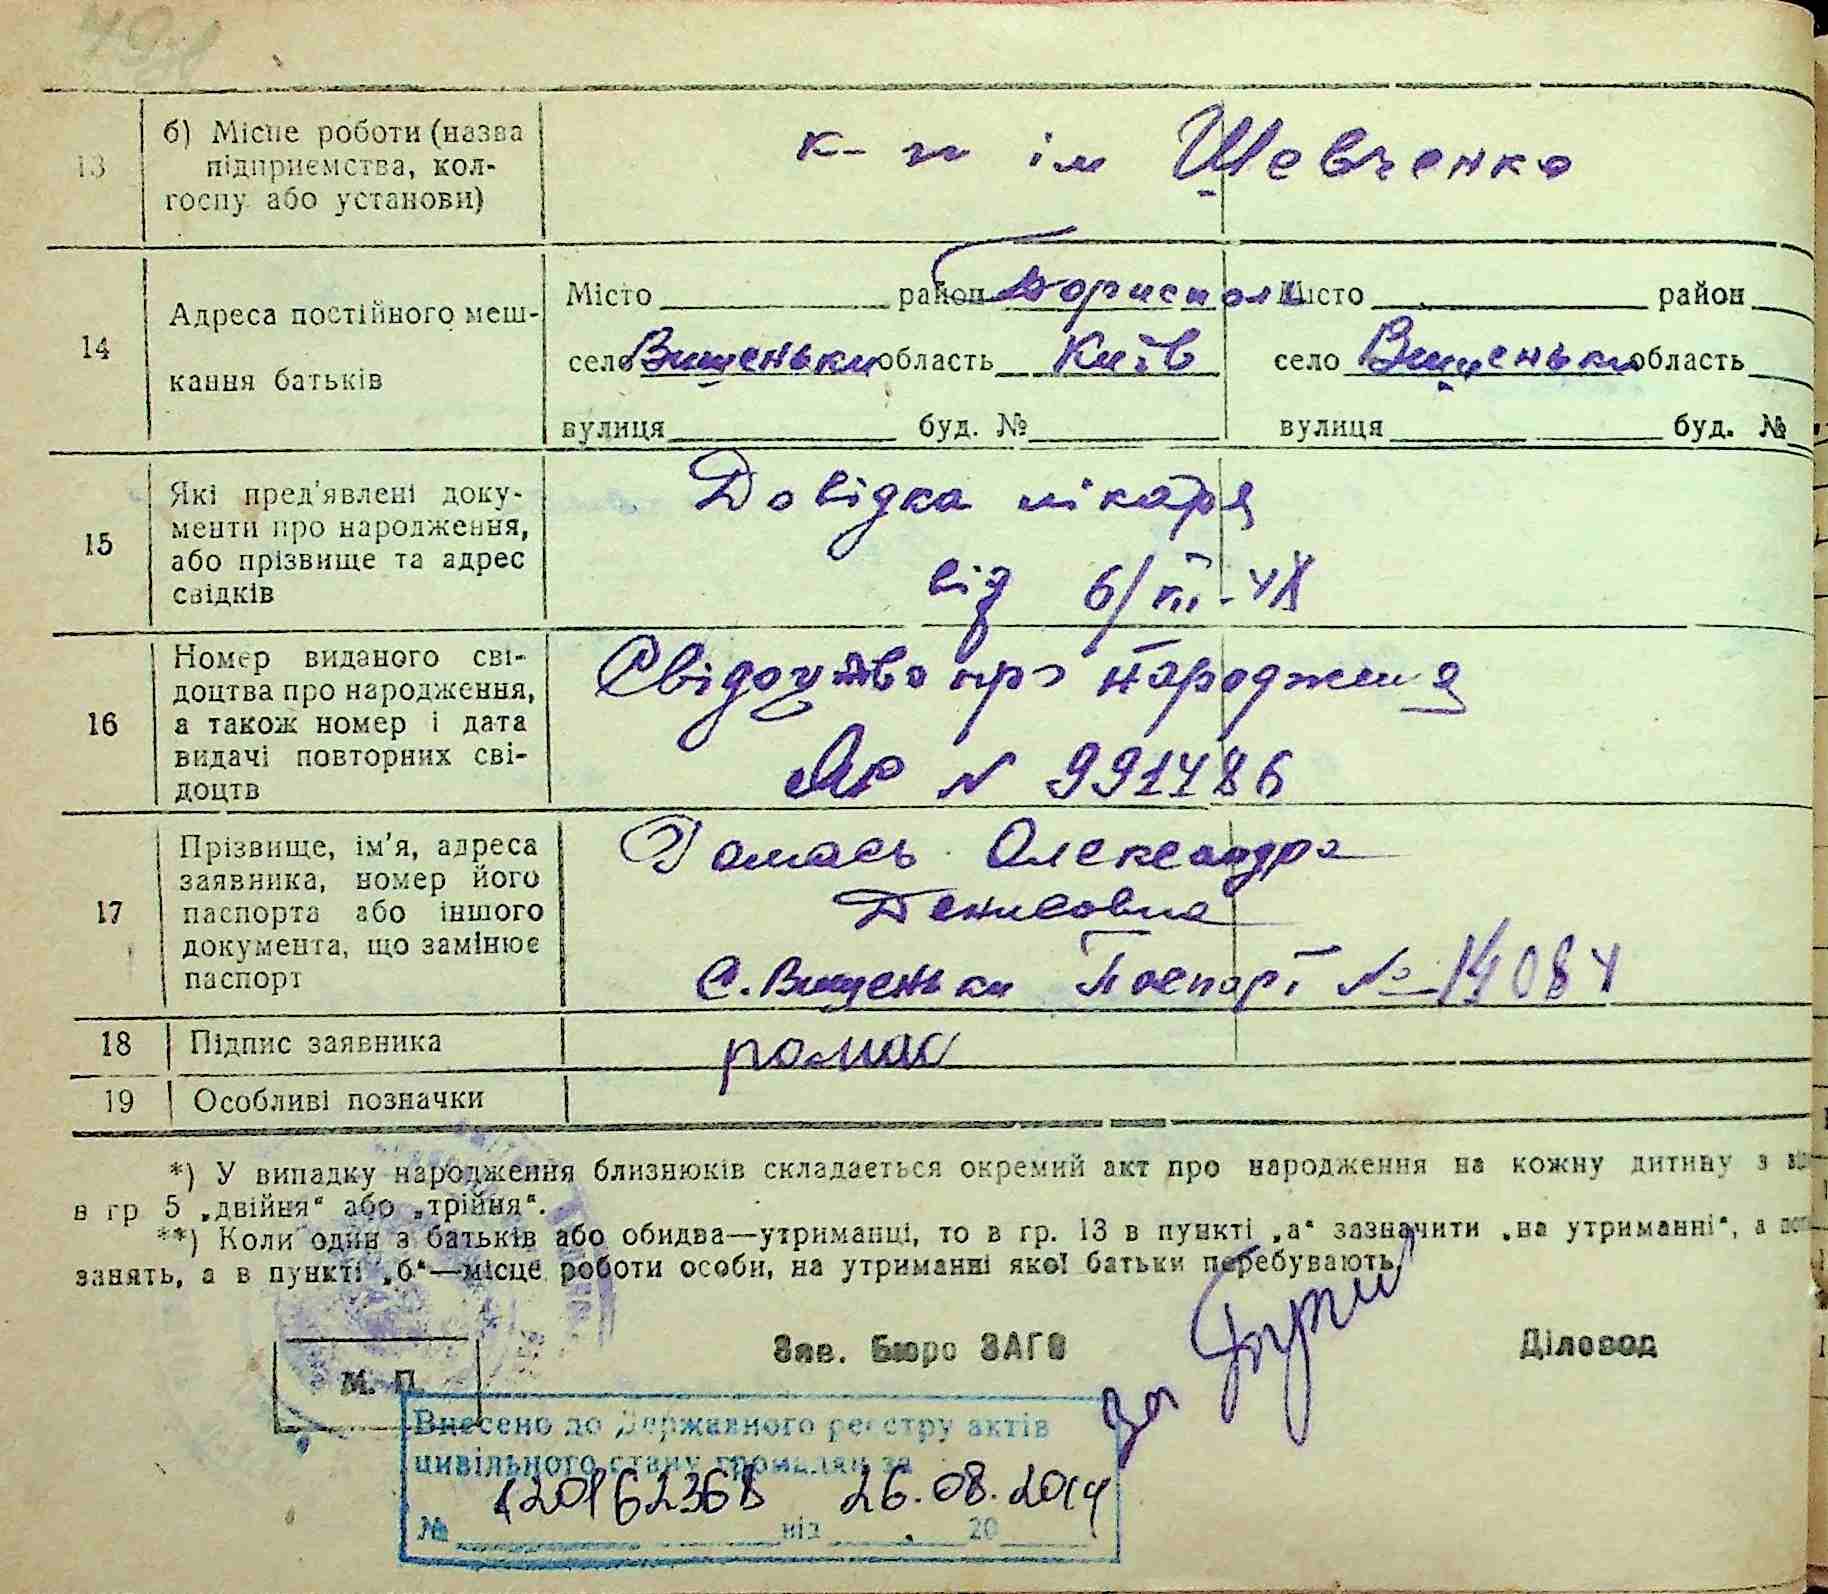 13
б) Місце роботи (назва
підприємства, кол-
госпу або установи)
к-п ім Шевченко
14
Адреса постійного меш-
кання батьків
Місто район Бориспол
село Вишеньки область Київ
вулиця буд. №
Місто район
село Вишеньки область
вулиця буд. №
15
Які пред'явлені доку-
менти про народження,
або прізвище та адрес
свідків
Довідка лікаря
від 6/
16
Номер виданого сві-
доцтва про народження,
а також номер і дата
видачі повторних сві-
доцтв
Свідоцтво про народження
N 991486
17
Прізвище, ім'я, адреса
заявника, номер його
паспорта або іншого
документа, що замінює
паспорт
Ромась Олександра
Денисовна
с. Вишеньки Паспорт № 14084
18
Підпис заявника
ромас
19
Особливі позначки
*) У випадку народження близнюків складається окремий акт про народження на кожну дитину з
в гр 5 „двійня“ або „трійня“.
**) Коли один з батьків або обидва—утриманці, то в гр. 13 в пункті „а“ зазначити „на утриманні“, а
занять, а в пункті „б“—місце роботи особи, на утриманні якої батьки перебувають
Зав. Бюро ЗАГС
за
Діловод
М. П.
Внесено до Державного реєстру актів
цивільного стану громадян за
120162368 26.08.2014
№ від . 20